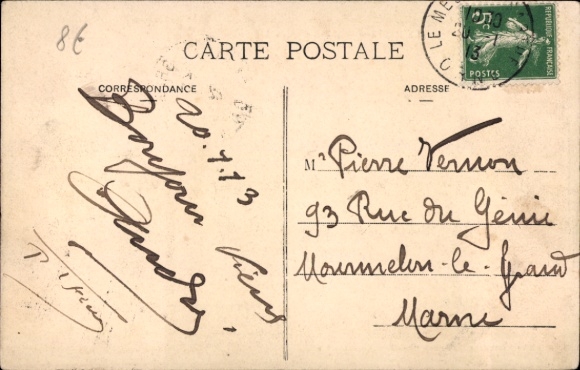 8€
CARTE POSTALE
CORRESPONDANCE
ADRESSE
REPUBLIQUE FRANÇAISE
POSTES
5c
LE ME
13
20.1.13
Bonjour
Mr Pierre Vernon
93 Rue du Génie
Mourmelon-le-Grand
Marne